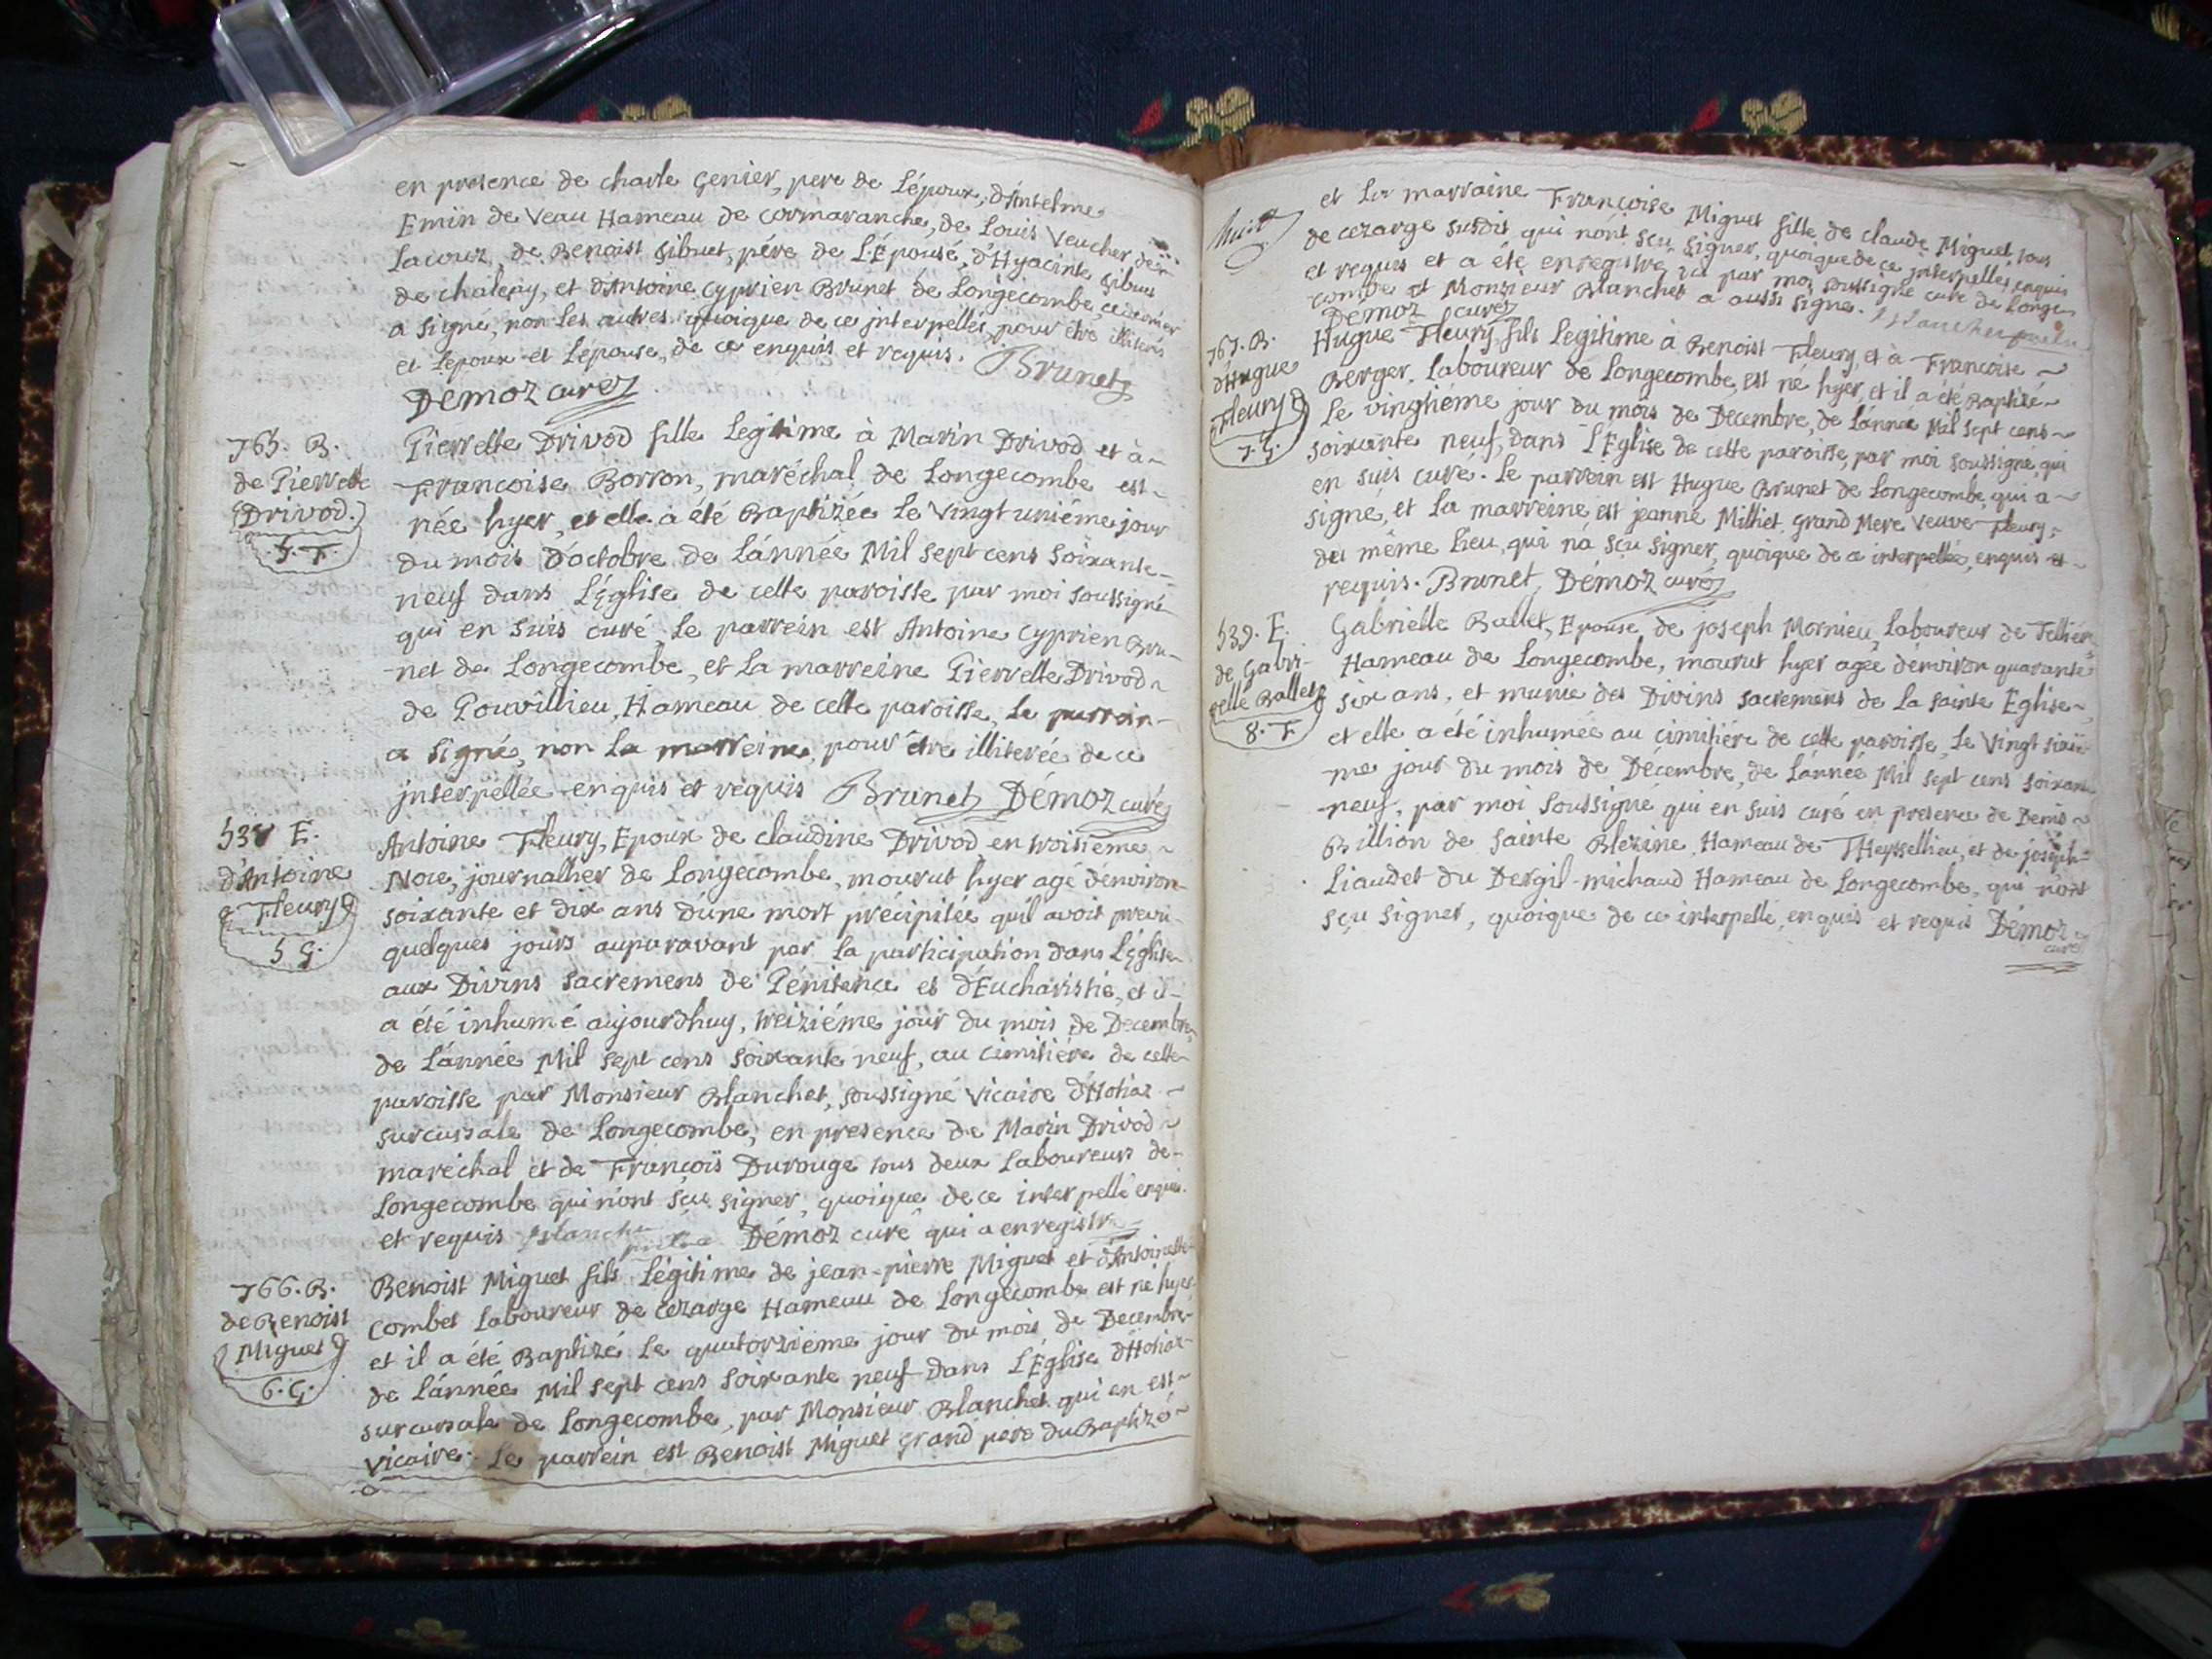 en presence de charle Genier, pere de Lépoux, d'Antelme
Emin de Veau Hameau de cormaranche, de Louis Veucher de
Lacouz, de Benoist Sibuet, pére de L'Épouse, d'Hyacinte Sibuet
de chaley, et d'Antoine Cyprien Brunet de Longecombe, ce dernier
a signé, non Les autres quoique de ce jnterpellés, pour être illiterés
et Lepoux et Lepouse, de ce enquis et requis. Brunet
Démoz curé
765. B.
de Pierrette
Drivod.
5. F.
Pierrette Drivod fille Legitime à Marin Drivod et à
Francoise Borron, maréchal de Longecombe est
née hyer, et elle a été Baptizée Le vingt uniéme jour
du mois d'octobre de L'année Mil sept cens soixante
neuf dans L'Église de cette paroisse par moi soussigné
qui en suis curé. Le parrein est Antoine Cyprien Bru-
-net de Longecombe, et La marreine Pierrette Drivod
de Pouvillieu, Hameau de cette paroisse, Le parrein
a signé, non La marreine, pour être illiterée de ce
jnterpellée enquis et requis Brunet Démoz curé
538 E.
d'Antoine
Fleury
5 G.
Antoine Fleury, Epoux de claudine Drivod en troisieme
Noce, journallier de Longecombe, mourut hyer agé d'environ
soixante et dix ans d'une mort précipitée qu'il avoit prevu
quelques jours auparavant par La participation dans L'Église
aux Divins sacremens de Pénitence et d'Eucharistie, et il
a été inhumé aujourdhuy, treiziéme jour du mois de Decembre
de L'année Mil sept cens soixante neuf, au cimitiére de cette
paroisse par Monsieur Blanchet, soussigné vicaire d'Hotiaz
surcursale de Longecombe, en presence de Marin Drivod
maréchal et de François Durouge tous deux Laboureurs de
Longecombe qui n'ont sçu signer, quoique de ce interpellé enquis
et requis Blanchet Démoz curé qui a enregistré
766. B.
de Benoist
Miguet
6. G.
Benoist Miguet fils Légitime de jean-pierre Miguet et d'Antoinette
Combet Laboureur de cezarge Hameau de Longecombe est né hyer
et il a été Baptizé Le quatorzieme jour du mois de Decembre
de L'année Mil sept cens soixante neuf dans L'Eglise d'Hotiaz
surcursale de Longecombe, par Monsieur Blanchet qui en est
vicaire. Le parrein est Benoist Miguet grand pere du Baptizé
huit
et La marraine Francoise Miguet fille de claude Miguet, tous
de cezarge susdit qui n'ont sçu signer, quoique de ce jnterpellés enquis
et requis et a été enregistré ici par moi soussigné curé de Longe-
combe et Monsieur Blanchet a aussi signé. Blanchet
Démoz curé
767. B.
d'Hugue
Fleury
7. G.
Hugue Fleury fils Legitime à Benoist Fleury, et à Francoise
Berger, Laboureur de Longecombe, est né hyer, et il a été Baptizé
Le vinghiéme jour du mois de Decembre, de L'année Mil sept cens
soixante neuf, dans L'Église de cette paroisse, par moi soussigné, qui
en suis curé. Le parrein est Hugue Brunet de Longecombe qui a
signé, et La marreine est jeanne Milliet, grand Mere veuve Fleury,
du même lieu, qui n'a sçu signer, quoique de ce interpellée, enquis et
requis. Brunet, Démoz curé
539. E.
de Gabri-
elle Ballet
8. F.
Gabrielle Ballet, Epouse de joseph Mornieu, Laboureur de Tellier
Hameau de Longecombe, mourut hyer agée d'environ quarante
six ans, et munie des Divins sacremens de La sainte Eglise
et elle a été inhumée au cimitiére de cette paroisse, Le vingt sixié-
me jour du mois de Décembre, de L'année Mil sept cens soixante
neuf, par moi soussigné qui en suis curé en presence de Denis
Billion de sainte Blezine, Hameau de Theyssellieu, et de joseph
Liaudet du Dergil-michaud Hameau de Longecombe, qui n'ont
sçu signer, quoique de ce interpellé, enquis et requis Démoz
curé